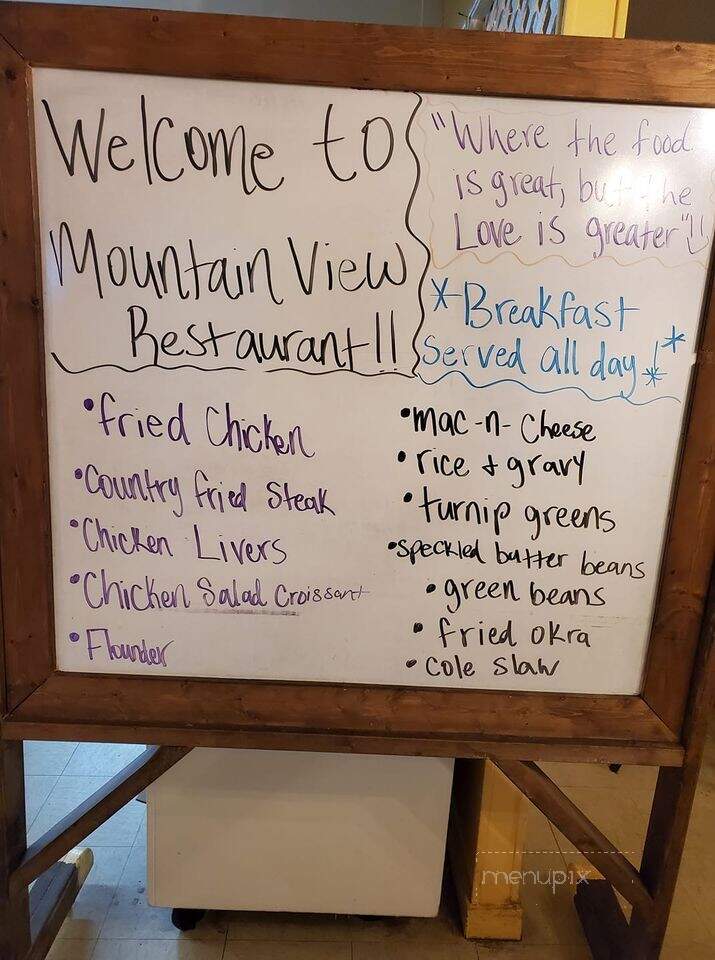 Welcome to
Mountain View
Restaurant!!
"Where the food
is great, but the
Love is greater"!!
*Breakfast
Served all day!**
•fried Chicken
•Country fried Steak
•Chicken Livers
•Chicken Salad Croissant
•Flounder
•mac-n-Cheese
•rice + gravy
•turnip greens
•speckled butter beans
•green beans
•fried okra
•cole slaw
menupix